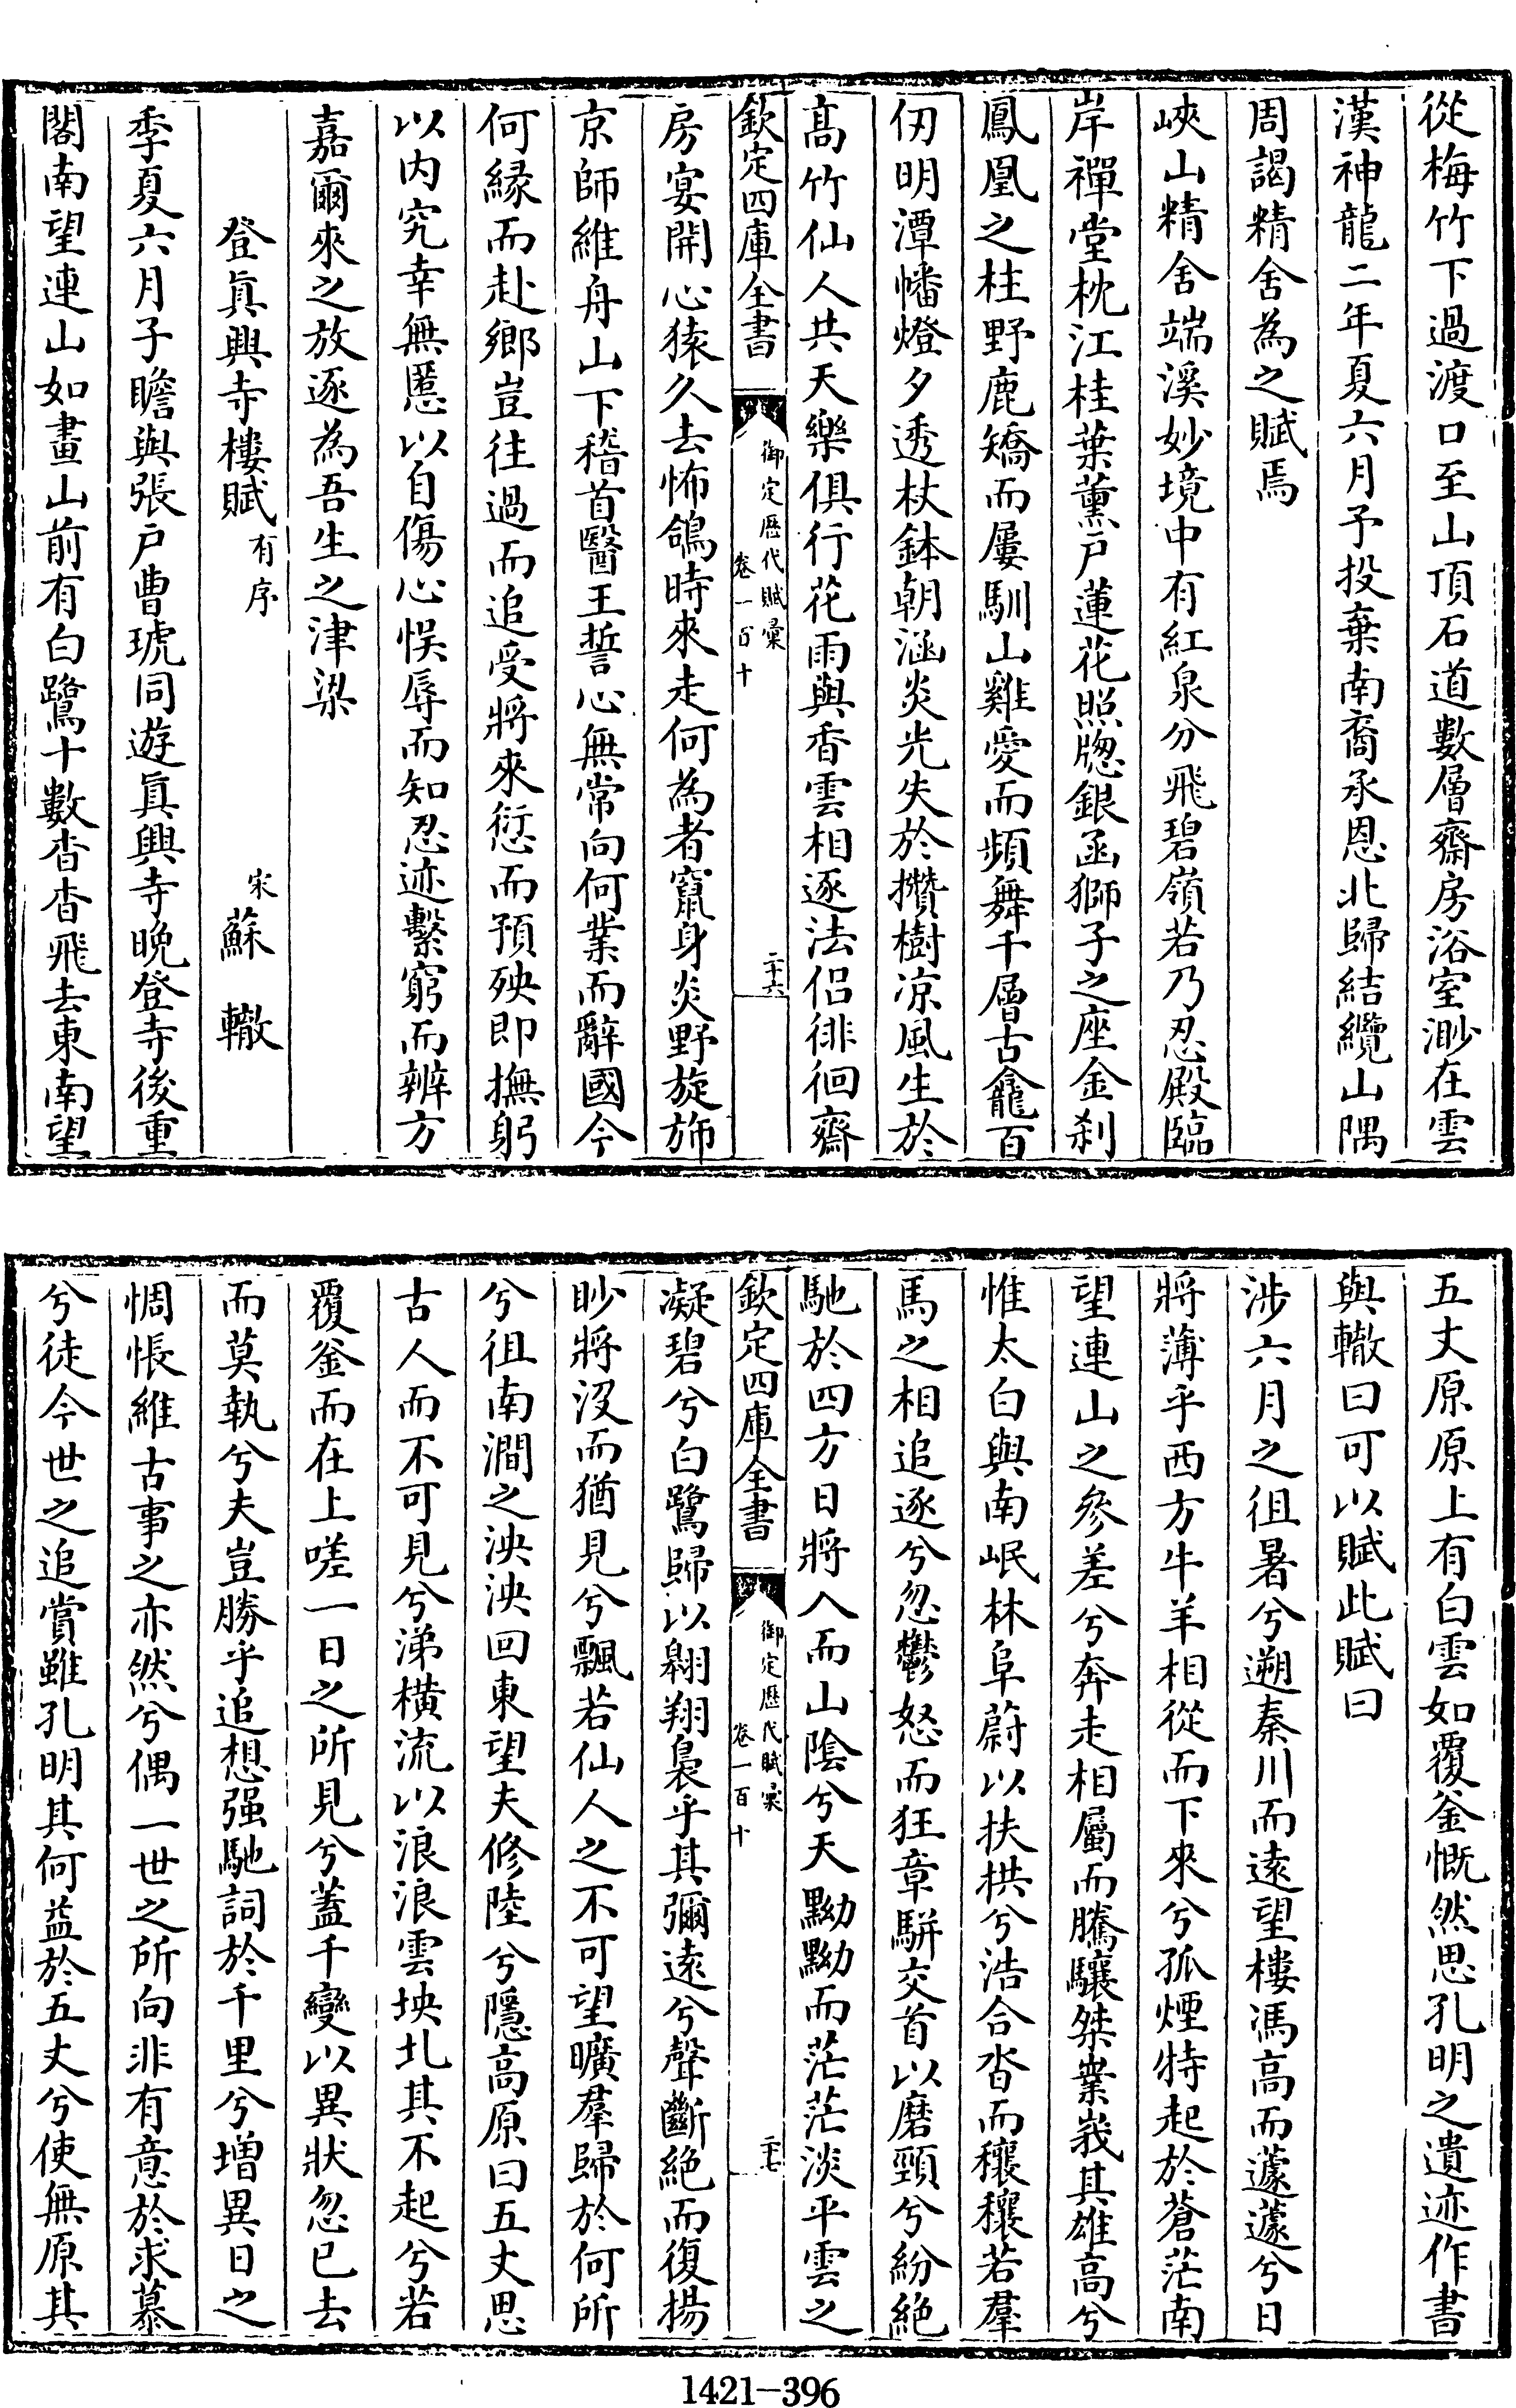 從梅竹下過渡口至山頂石道數層齋房浴室渺在雲
漢神龍二年夏六月予投棄南裔承恩北歸結纜山隅
周謁精舍為之賦焉
峽山精舍端溪妙境中有紅泉分飛碧嶺若乃忍殿臨
岸禪堂枕江桂葉薰戸蓮花照牎銀函獅子之座金刹
鳳凰之柱野鹿矯而屢馴山雞愛而頻舞千層古龕百
仞明潭幡燈夕透杖鉢朝涵炎光失於攢樹凉風生於
髙竹仙人共天樂俱行花雨與香雲相逐法侣徘徊齋
欽定四庫全書
御定歴代賦彙
卷一百十
二十六
房宴開心猿久去怖鴿時來走何為者竄身炎野旋斾
京師維舟山下稽首醫王誓心無常向何業而辭國今
何緣而赴鄉豈往過而追受將來愆而預殃即撫躬
以内究幸無慝以自傷心悮辱而知忍迹繫窮而辨方
嘉爾來之放逐為吾生之津梁
登眞興寺樓賦有序
宋蘇轍
季夏六月子瞻與張戸曹琥同遊眞興寺晚登寺後重
閣南望連山如畫山前有白鷺十數杳杳飛去東南望
五丈原原上有白雲如覆釜慨然思孔明之遺迹作書
與轍曰可以賦此賦曰
涉六月之徂暑兮遡秦川而逺望樓馮高而蘧蘧兮日
將薄乎西方牛羊相從而下來兮孤煙特起於蒼茫南
望連山之參差兮奔走相屬而騰驤桀業峩其雄高兮
惟太白與南岷林阜蔚以扶拱兮浩合沓而穰穰若羣
馬之相追逐兮忽鬱怒而狂章駢交首以磨頸兮紛絶
馳於四方日將入而山隂兮天黝黝而茫茫淡平雲之
欽定四庫全書
御定歴代賦彙
卷一百十
二十七
凝碧兮白鷺歸以翱翔裊乎其彌逺兮聲斷絶而復揚
眇將沒而猶見兮飄若仙人之不可望曠羣歸於何所
兮徂南澗之泱泱回東望夫修陸兮隱高原曰五丈思
古人而不可見兮涕横流以浪浪雲坱圠其不起兮若
覆釜而在上嗟一日之所見兮蓋千變以異狀忽已去
而莫執兮夫豈勝乎追想强馳詞於千里兮増異日之
惆悵維古事之亦然兮偶一世之所向非有意於求慕
兮徒今世之追賞雖孔明其何益於五丈兮使無原其
1421-396